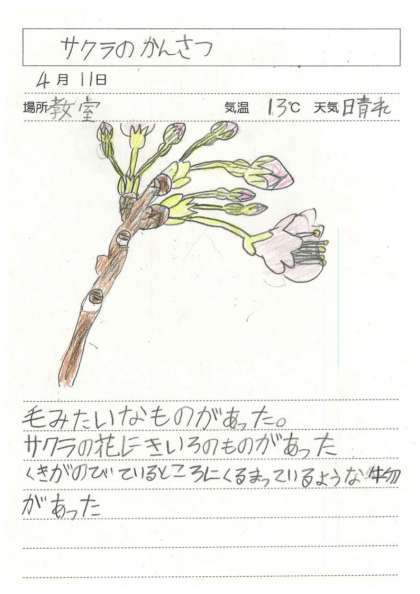 サクラのかんさつ
4月11日
場所 教室 気温 13℃ 天気 日晴れ
毛みたいなものがあった。
サクラの花にきいろのものがあった
くきがのびているところにくるまっているような物
があった